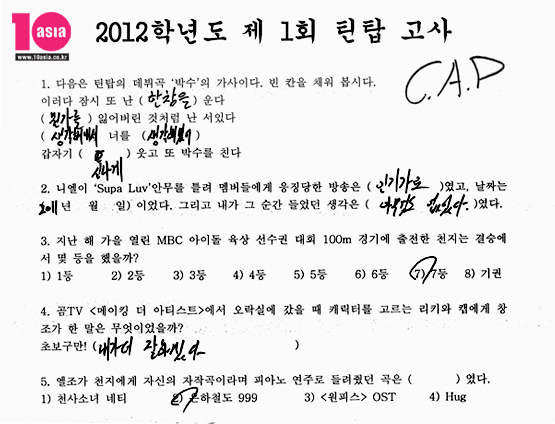 10asia
www.10asia.co.kr
2012학년도 제 1회 틴탑 고사
C.A.P
1. 다음은 틴탑의 데뷔곡 ‘박수’의 가사이다. 빈 칸을 채워 봅시다.
이러다 잠시 또 난 ( 한참을 ) 운다
( 뭔가를 ) 잃어버린 것처럼 난 서있다
( ) 너를 ( )
갑자기 ( ) 웃고 또 박수를 친다
신나게
2. 니엘이 ‘Supa Luv’안무를 틀려 멤버들에게 응징당한 방송은 ( 인기가요 )였고, 날짜는
( 2011 년 월 일) 이었다. 그리고 내가 그 순간 들었던 생각은 ( 아무감도 없었다. )였다.
3. 지난 해 가을 열린 MBC 아이돌 육상 선수권 대회 100m 경기에 출전한 천지는 결승에
서 몇 등을 했을까?
1) 1등 2) 2등 3) 3등 4) 4등 5) 5등 6) 6등 7) 7등 8) 기권
4. 곰TV <메이킹 더 아티스트>에서 오락실에 갔을 때 캐릭터를 고르는 리키와 캡에게 창
조가 한 말은 무엇이었을까?
초보구만! ( 내가더 잘하겠다 )
5. 엘조가 천지에게 자신의 자작곡이라며 피아노 연주로 들려줬던 곡은 ( ) 였다.
1) 천사소녀 네티 2) 은하철도 999 3) <원피스> OST 4) Hug